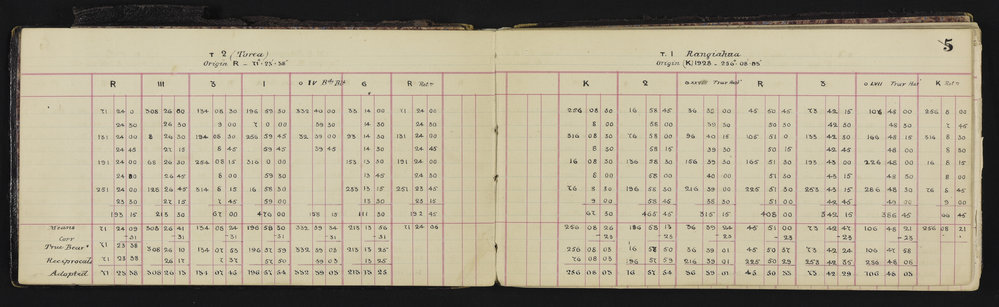 5
T 2 (Turea)
Origin R - 71° 23' 38"
R III 3 I O IV 6 R
71 24 0 308 26 30 134 08 30 196 59 30 332 40 00 33 14 00 71 24 00
24 30 26 30 9 00 7 0 00 39 30 14 30 24 30
131 24 00 8 26 30 194 08 30 256 59 45 32 39 00 93 14 30 131 24 00
24 45 27 15 8 45 59 45 39 45 14 30 24 45
191 24 00 68 26 30 254 08 15 316 0 00 153 13 30 191 24 00
24 30 26 45 8 00 59 30 13 45 24 30
251 24 00 128 26 45 314 8 15 16 58 30 233 13 15 251 23 45
23 30 27 15 7 45 59 00 13 30 23 15
193 15 213 30 67 00 476 00 158 15 111 30 192 45
Means 71 24 09 308 26 41 134 08 24 196 58 30 332 39 34 213 13 56 71 24 06
Corr -31 -31 -31 -31 -31
True Bear 71 23 38 308 26 10 134 07 53 196 57 59 332 39 03 213 13 25
Reciprocals 26 17 7 37 57 50 39 03 13 25
Adopted 71 23 38 308 26 13 134 07 45 196 57 54 332 39 03 213 13 25
T. 1 Rangiahua
Origin (K) 1928 - 256° 08' 03"
K 2 O XXVIII Trav Has R 3 O LVII Trav Has K
256 08 30 16 58 45 36 39 00 45 50 45 73 42 15 106 48 00 256 8 00
8 00 58 00 39 30 50 30 42 30 48 30 7 45
316 08 30 76 58 00 96 40 15 105 51 0 133 42 30 166 48 15 316 8 30
8 30 58 15 39 30 50 15 42 45 48 00 8 30
16 08 30 136 58 30 156 39 30 165 51 30 193 43 00 226 48 00 16 8 15
8 00 58 00 40 00 51 30 43 15 48 00 8 00
76 8 30 196 58 30 216 39 00 225 51 30 253 43 15 286 48 30 76 8 45
9 00 58 45 38 30 51 00 42 45 49 00 9 00
67 30 465 45 315 15 408 00 342 15 386 45 66 45
256 08 26 196 58 13 36 39 24 45 51 00 73 42 47 106 48 21 256 08 21
-23 -23 -23 -23 -23
256 08 03 16 57 50 36 39 01 45 50 37 73 42 24 106 47 58
76 08 03 196 57 59 216 39 01 225 50 29 253 42 35 286 48 08
256 08 03 16 57 54 36 39 01 45 50 33 73 42 29 106 48 03